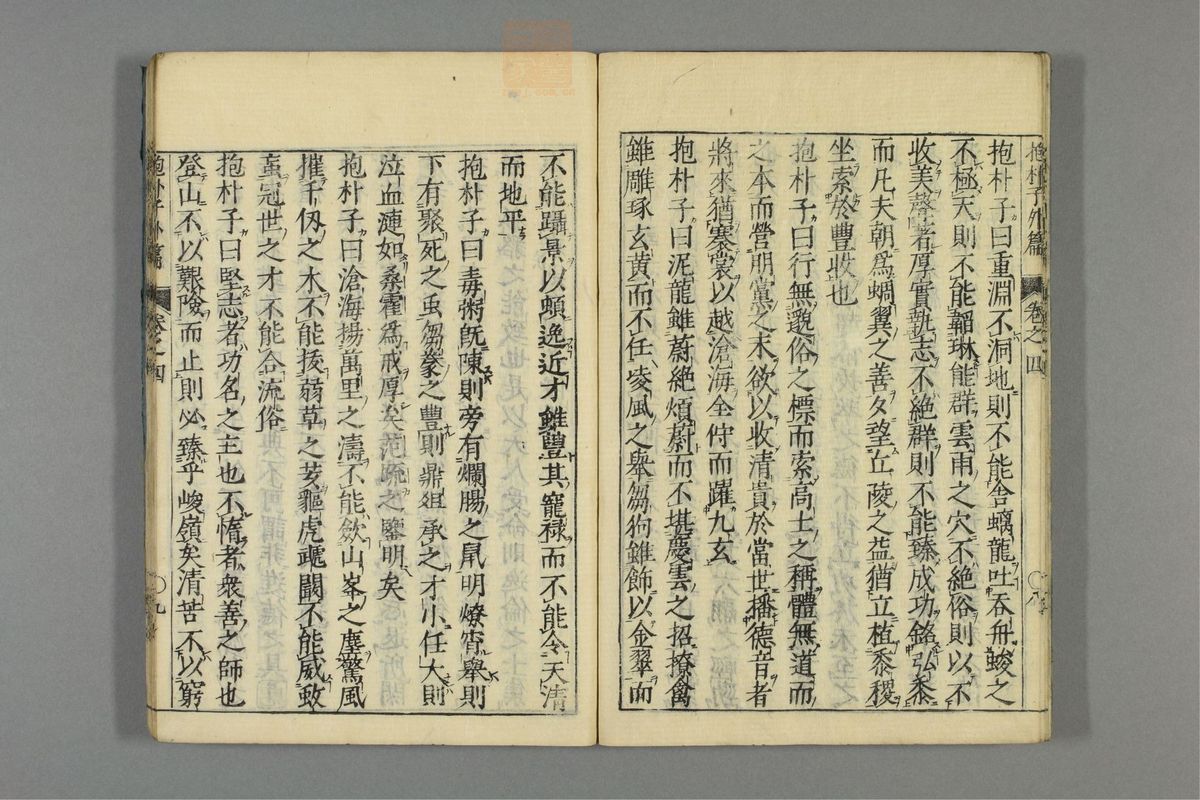 抱朴子外篇　卷之四
抱朴子曰重淵不洞地則不能含螭龍吐吞舟峻之
不極天則不能韜琳能群雲雨之穴不絶俗則以不
收美聲著厚實執志不絶群則不能臻成功銘弘
而凡夫朝爲蜩翼之善夕望丘陵之益猶立植黍稷
坐索於豊收也
抱朴子曰行無邈俗之標而索高士之稱體無道而
之本而營朋黨之末欲以收清貴於當世播德音者
將來猶褰裳以越滄海企佇而躍九玄
抱朴子曰泥龍雖蔚絶煩蔚而不堪慶雲之招撩禽
雖雕琢玄黄而不任凌風之舉芻狗雖飾以金翠而
不能躡景以頓逸近才雖豐其寵禄而不能令天清
而地平
抱朴子曰毒粥既陳則旁有爛腸之鼠明燎宵舉則
下有聚死之虫芻豢之豊則鼎俎承之才小任大則
泣血漣如桑霍爲戒厚矣范疏之鑒明矣
抱朴子曰滄海揚萬里之濤不能斂山峯之塵驚風
摧千仭之木不能拔弱草之荄䝙虎虓闞不能威蚊
䖟冠世之才不能合流俗
抱朴子曰堅志者功名之主也不惰者衆善之師也
登山不以艱險而止則必臻乎峻嶺矣清苦不以窮
抱朴子外篇　卷之四